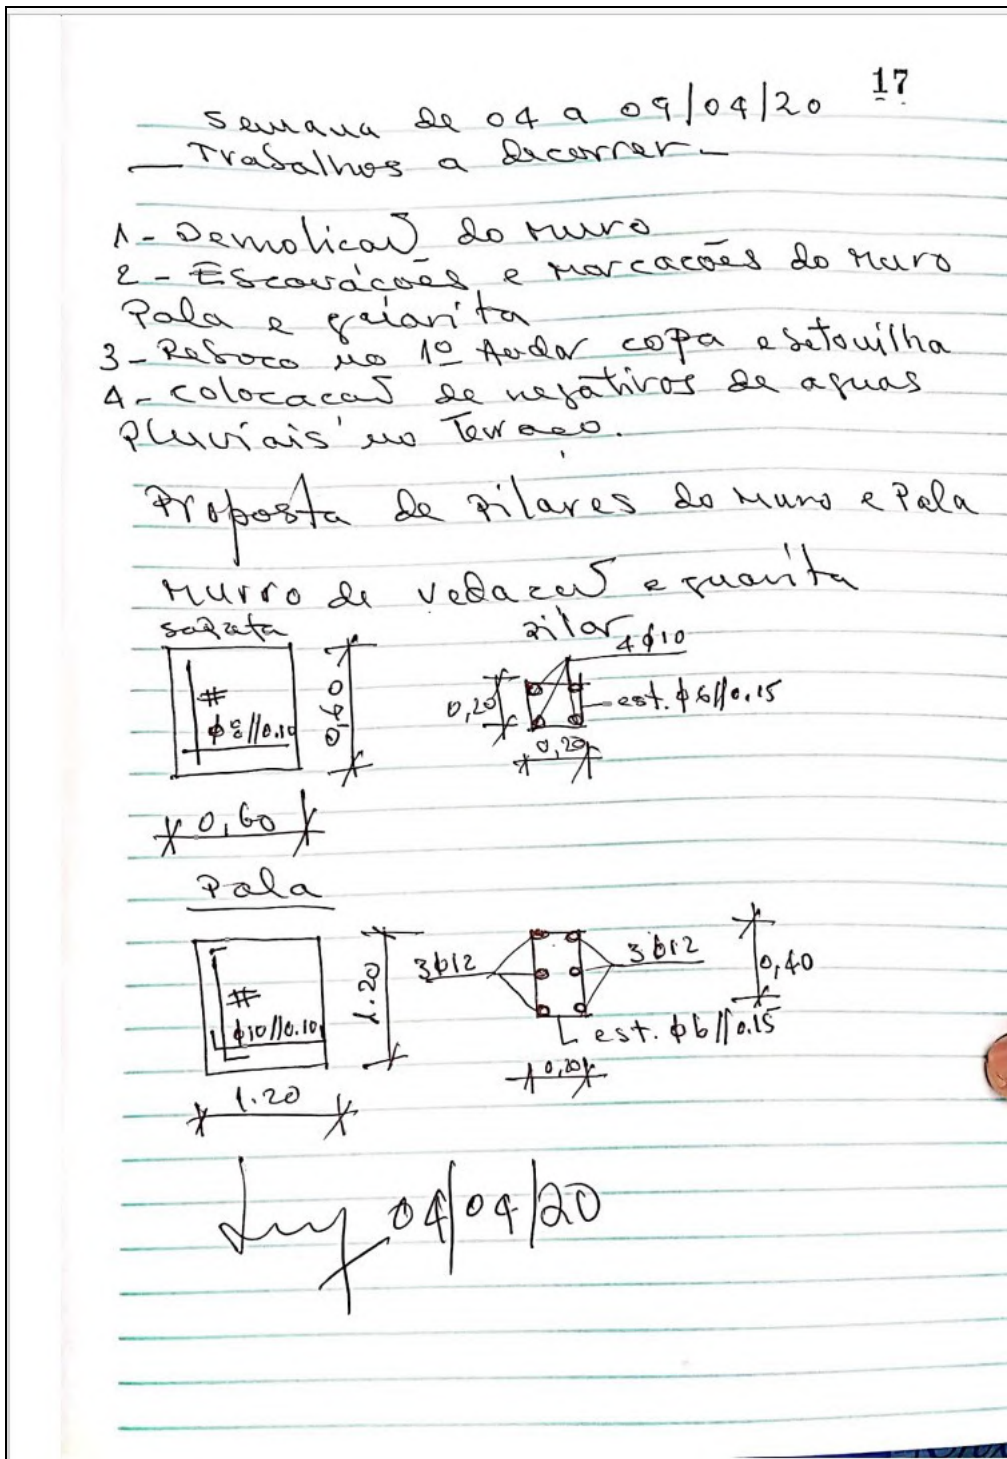 17
Semana de 04 a 09/04/20
Trabalhos a decorrer
1 - Demolicaõ do muro
2 - Escavacões e marcacões do muro
Pala e guiarita
3 - Reboco no 1º Andar copa e betouilha
4 - colocacaõ de negativos de aguas
pluviais no Terraço.
Proposta de pilares do muro e Pala
Murro de vedacaõ e guarita
sapata
pilar
4ϕ10
#
ϕ8//0.10
0,60
0,20
est. ϕ6//0.15
0,20
0,60
Pala
#
ϕ10//0.10
1.20
3ϕ12
3ϕ12
0,40
est. ϕ6//0.15
0,20
1.20
04/04/20